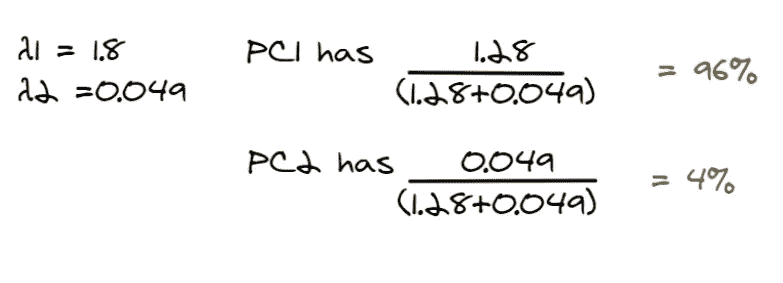 λ1 = 1.8
λ2 = 0.049
PC1 has 1.28 / (1.28+0.049) = 96%
PC2 has 0.049 / (1.28+0.049) = 4%